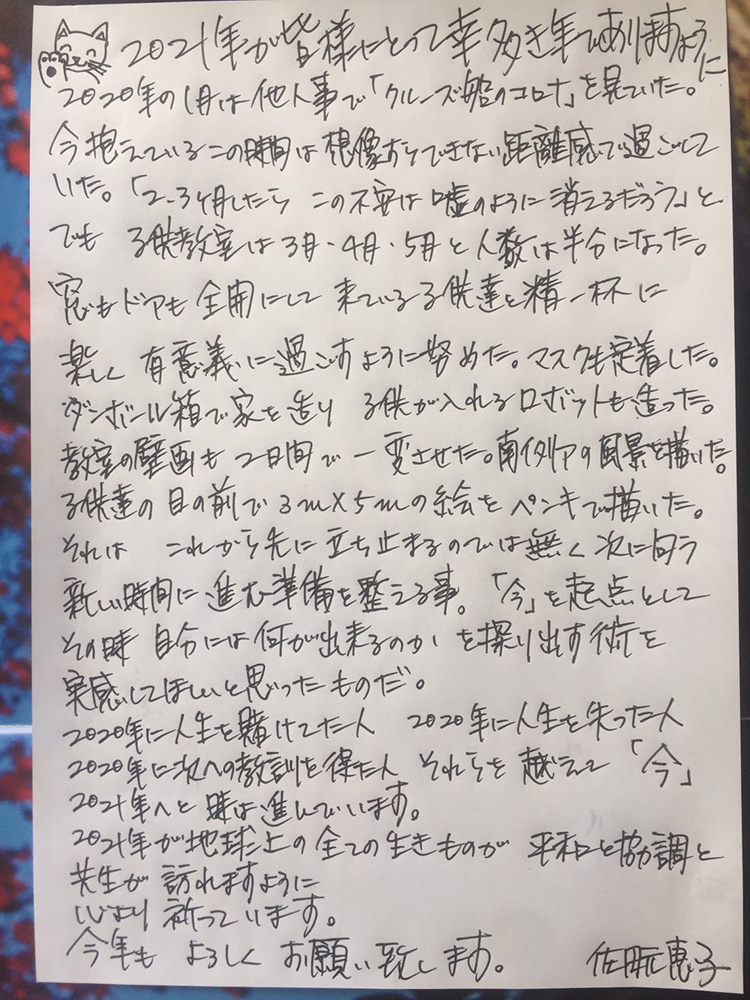 2021年が皆様にとって幸多き年でありますように
2020年の1月は他人事で「クルーズ船のコロナ」を見ていた。
今抱えているこの時間は想像すらできない距離感で過ごして
いた。「2、3ヶ月したら この不安は嘘のように消えるだろう」と
でも 子供教室は3月・4月・5月と人数は半分になった。
窓もドアも全開にして 来ている子供達と精一杯に
楽しく 有意義に過ごすように努めた。マスクも定着した。
ダンボール箱で家を造り 子供が入れるロボットも造った。
教室の壁画も 2日間で一変させた。南イタリアの風景を描いた。
子供達の目の前で3m×5mの絵をペンキで描いた。
それは これから先に立ち止まるのでは無く次に向う
新しい時間に進む準備を整える事。「今」を起点として
その時 自分には何が出来るのか を探り出す術を
実感してほしいと思ったものだ。
2020年に人生を賭けてた人 2020年に人生を失った人
2020年に次への教訓を得た人 それらを越えて「今」
2021年へと時は進んでいます。
2021年が地球上の全ての生きものが 平和と協調と
共生が訪れますように
心より祈っています。
今年も よろしく お願い致します。 佐 恵子